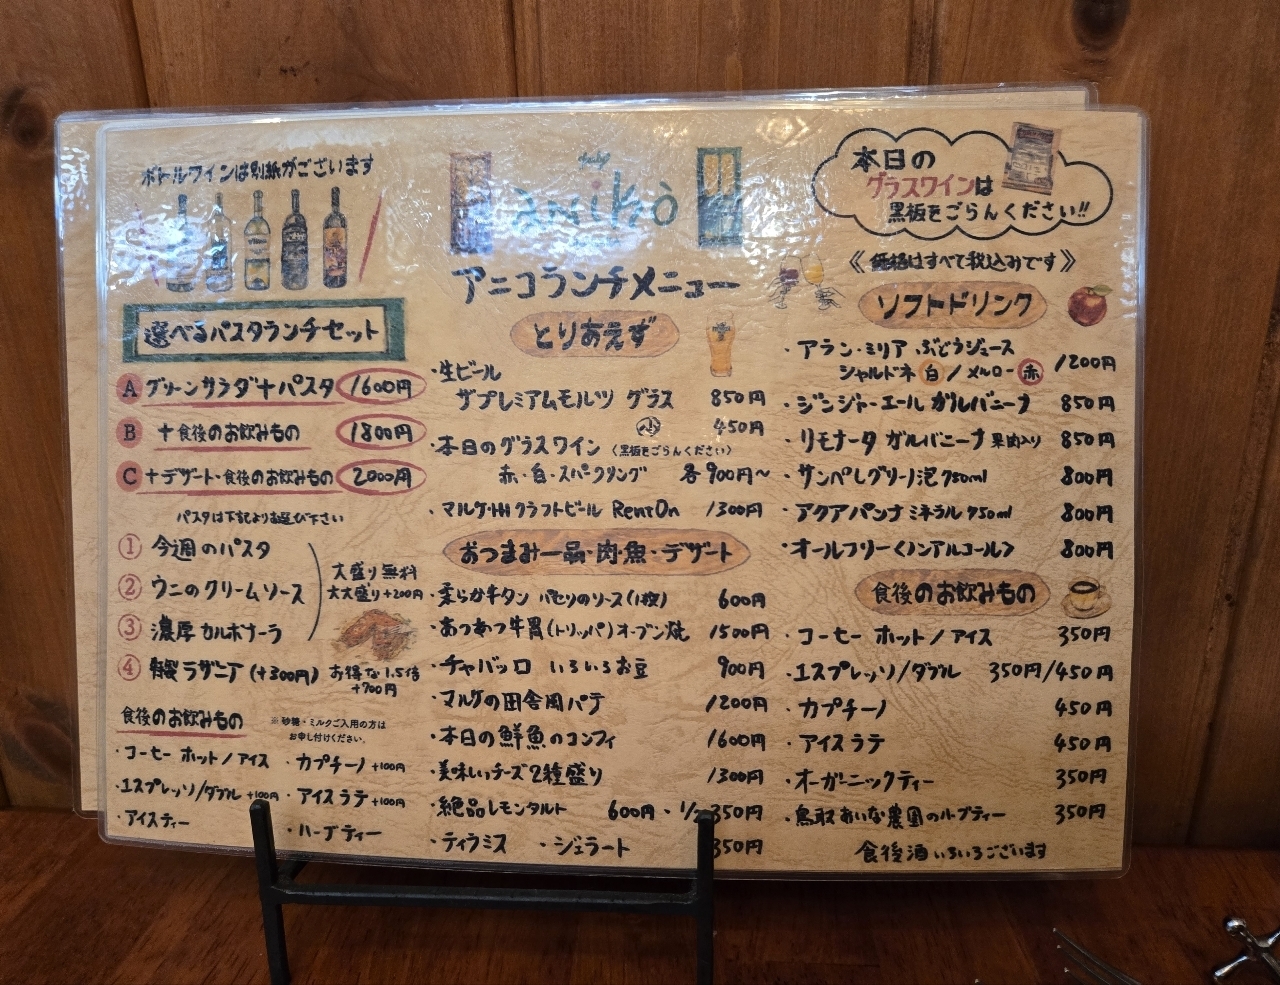 ボトルワインは別紙がございます
選べるパスタランチセット
A グリーンサラダ+パスタ 1600円
B +食後のお飲みもの 1800円
C +デザート・食後のお飲みもの 2000円
パスタは下記よりお選び下さい
① 今週のパスタ
② ウニのクリームソース
③ 濃厚カルボナーラ
④ 特製ラザニア (+300円)
大盛り無料
大大盛り+200円
お得な1.5倍
+700円
食後のお飲みもの
※砂糖・ミルクご入用の方は
お申し付けください。
・コーヒー ホット/アイス
・カプチーノ+100円
・エスプレッソ/ダブル+100円
・アイスラテ+100円
・アイスティー
・ハーブティー
アニコランチメニュー
とりあえず
・生ビール
ザプレミアムモルツ グラス 850円
小 450円
・本日のグラスワイン〈黒板をごらんください〉
赤・白・スパークリング 各900円〜
・マルケ州クラフトビール RentOn 1300円
おつまみ一品・肉・魚・デザート
・柔らか牛タン パセリのソース(1枚) 600円
・あつあつ牛胃(トリッパ)オーブン焼 1500円
・チャバッロ いろいろお豆 900円
・マルケの田舎風パテ 1200円
・本日の鮮魚のコンフィ 1600円
・美味しいチーズ2種盛り 1300円
・絶品レモンタルト 600円・1/2 350円
・ティラミス ・ジェラート 350円
本日の
グラスワインは
黒板をごらんください!!
《価格はすべて税込みです》
ソフトドリンク
・アラン・ミリア ぶどうジュース
シャルドネ 白/メルロー 赤 1200円
・ジンジャーエール ガルバニーナ 850円
・リモナータ ガルバニーナ 果肉入り 850円
・サンペレグリーノ泡750ml 800円
・アクアパンナミネラル750ml 800円
・オールフリー<ノンアルコール> 800円
食後のお飲みもの
・コーヒー ホット/アイス 350円
・エスプレッソ/ダブル 350円/450円
・カプチーノ 450円
・アイスラテ 450円
・オーガニックティー 350円
・鳥取あいな農園のハーブティー 350円
食後酒いろいろございます